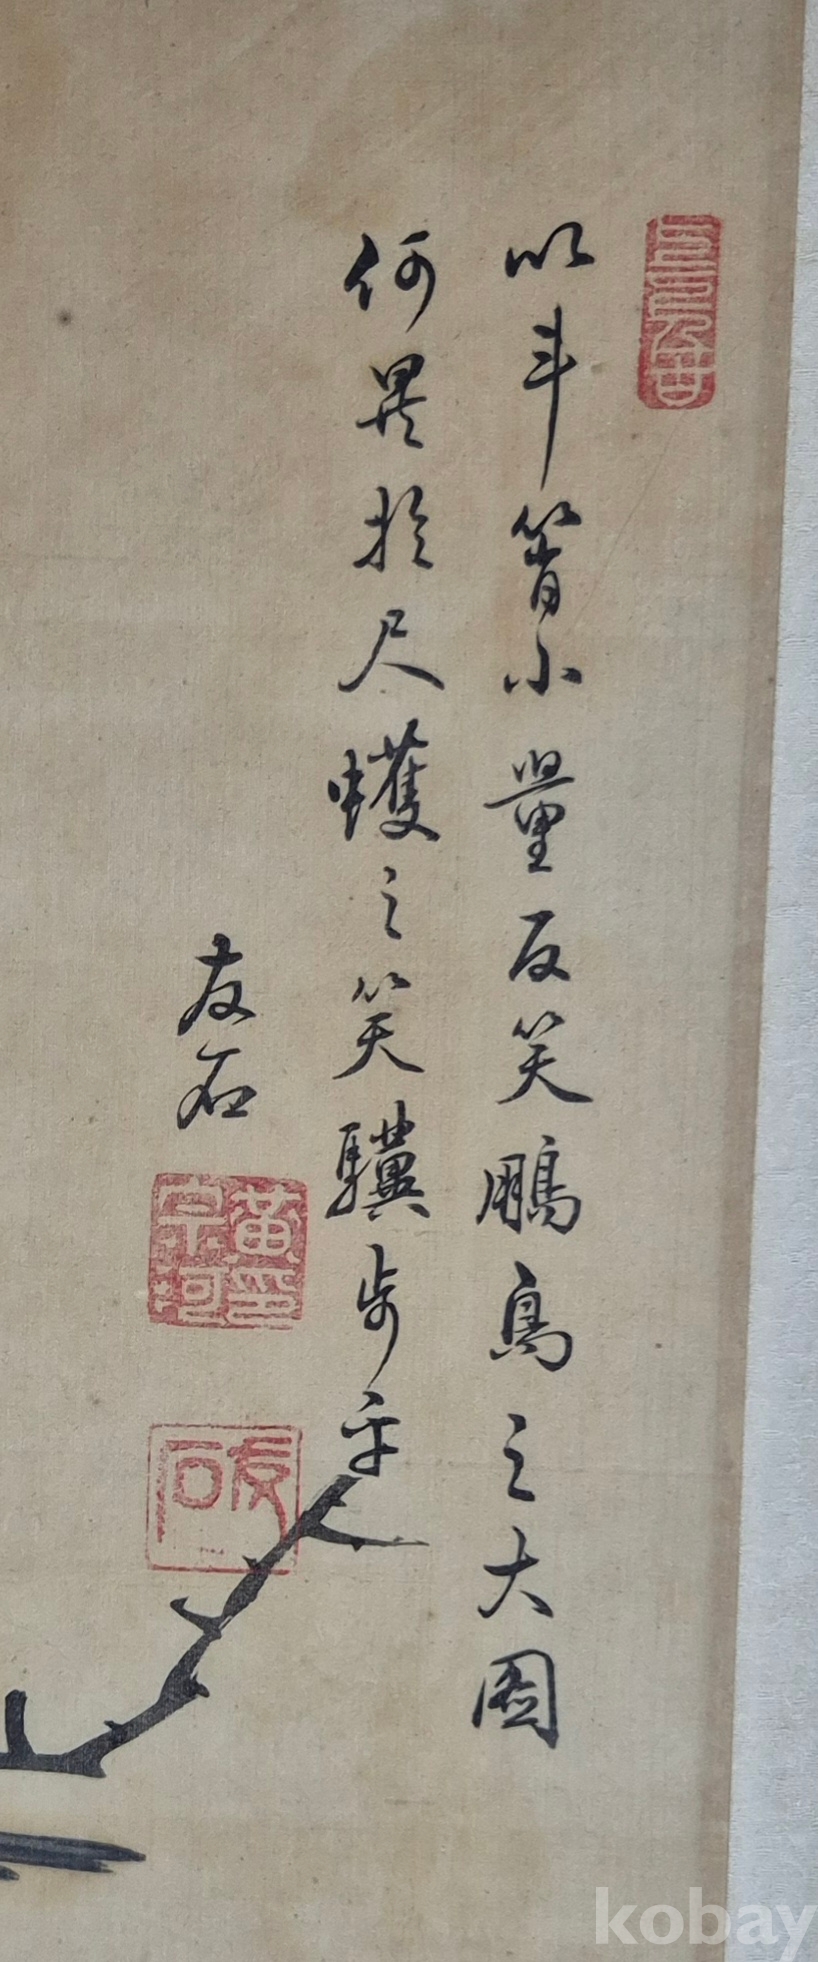 以斗筲小量反笑鵬鳥之大圖
何異於尺蠖之笑驥步乎
友石
黃宗河印
友石
kobay